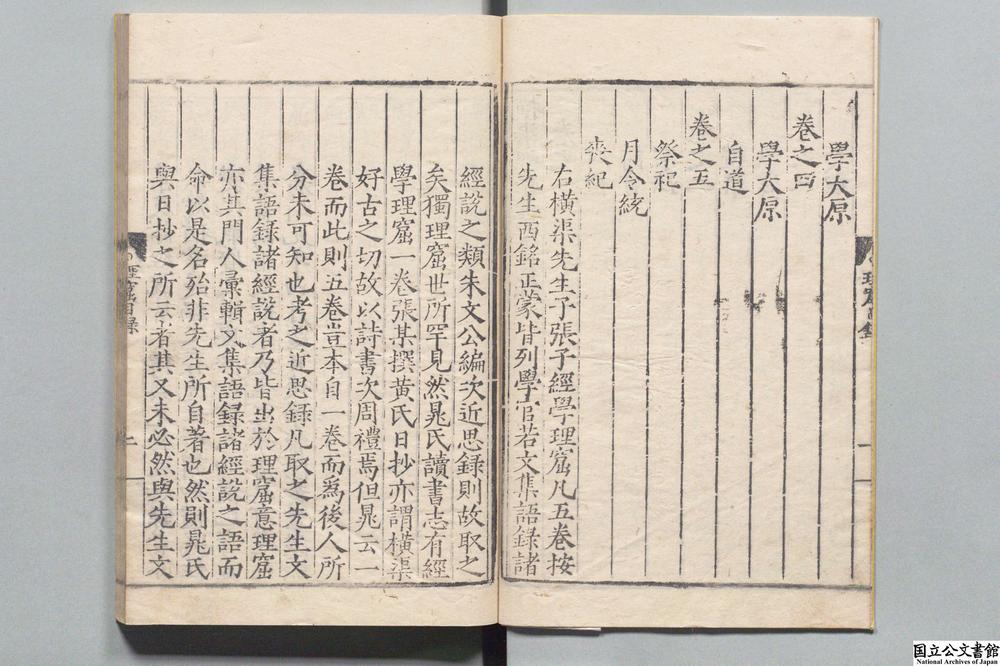 學大原
卷之四
學大原
自道
卷之五
祭祀
月令統
喪紀
右橫渠先生子張子經學理窟凡五卷按
先生西銘正蒙皆列學官若文集語錄諸
經說之類朱文公編次近思錄則故取之
矣獨理窟世所罕見然晁氏讀書志有經
學理窟一卷張某撰黃氏日抄亦謂橫渠
好古之切故以詩書次周禮焉但晁云一
卷而此則五卷豈本自一卷而為後人所
分未可知也考之近思錄凡取之先生文
集語錄諸經說者乃皆出於理窟意理窟
亦其門人彙輯文集語錄諸經說之語而
命以是名殆非先生所自著也然則晁氏
與日抄之所云者其又未必然與先生文
理窟目錄
國立公文書館
National Archives of Japan